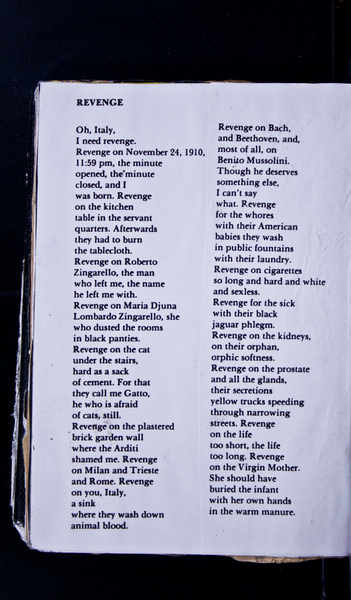 REVENGE
Oh, Italy,
I need revenge.
Revenge on November 24, 1910,
11:59 pm, the minute
opened, the minute
closed, and I
was born. Revenge
on the kitchen
table in the servant
quarters. Afterwards
they had to burn
the tablecloth.
Revenge on Roberto
Zingarello, the man
who left me, the name
he left me with.
Revenge on Maria Djuna
Lombardo Zingarello, she
who dusted the rooms
in black panties.
Revenge on the cat
under the stairs,
hard as a sack
of cement. For that
they call me Gatto,
he who is afraid
of cats, still.
Revenge on the plastered
brick garden wall
where the Arditi
shamed me. Revenge
on Milan and Trieste
and Rome. Revenge
on you, Italy,
a sink
where they wash down
animal blood.
Revenge on Bach,
and Beethoven, and,
most of all, on
Benito Mussolini.
Though he deserves
something else,
I can't say
what. Revenge
for the whores
with their American
babies they wash
in public fountains
with their laundry.
Revenge on cigarettes
so long and hard and white
and sexless.
Revenge for the sick
with their black
jaguar phlegm.
Revenge on the kidneys,
on their orphan,
orphic softness.
Revenge on the prostate
and all the glands,
their secretions
yellow trucks speeding
through narrowing
streets. Revenge
on the life
too short, the life
too long. Revenge
on the Virgin Mother.
She should have
buried the infant
with her own hands
in the warm manure.